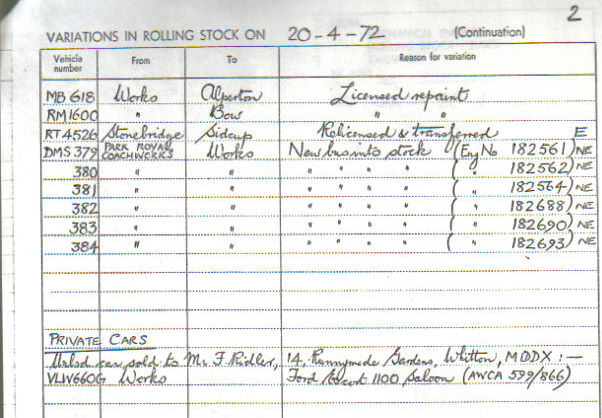 2
VARIATIONS IN ROLLING STOCK ON 20-4-72 (Continuation)
Vehicle number From To Reason for variation
MB 618 Works Alperton Licensed repaint
RM1600 " Bow " "
RT 4526 Stonebridge Sidcup Relicensed & transferred E
DMS 379 PARK ROYAL COACHWORKS Works New bus into stock (Eng No 182561) NE
380 " " " " " " ( " 182562) NE
381 " " " " " " ( " 182564) NE
382 " " " " " " ( " 182688) NE
383 " " " " " " ( " 182690) NE
384 " " " " " " ( " 182693) NE
PRIVATE CARS
Unlsd car sold to Mr F Ridler, 14, Runnymede Gardens, Whitton, MDDX :—
VLW660G Works Ford Escort 1100 Saloon (AWCA 599/866)